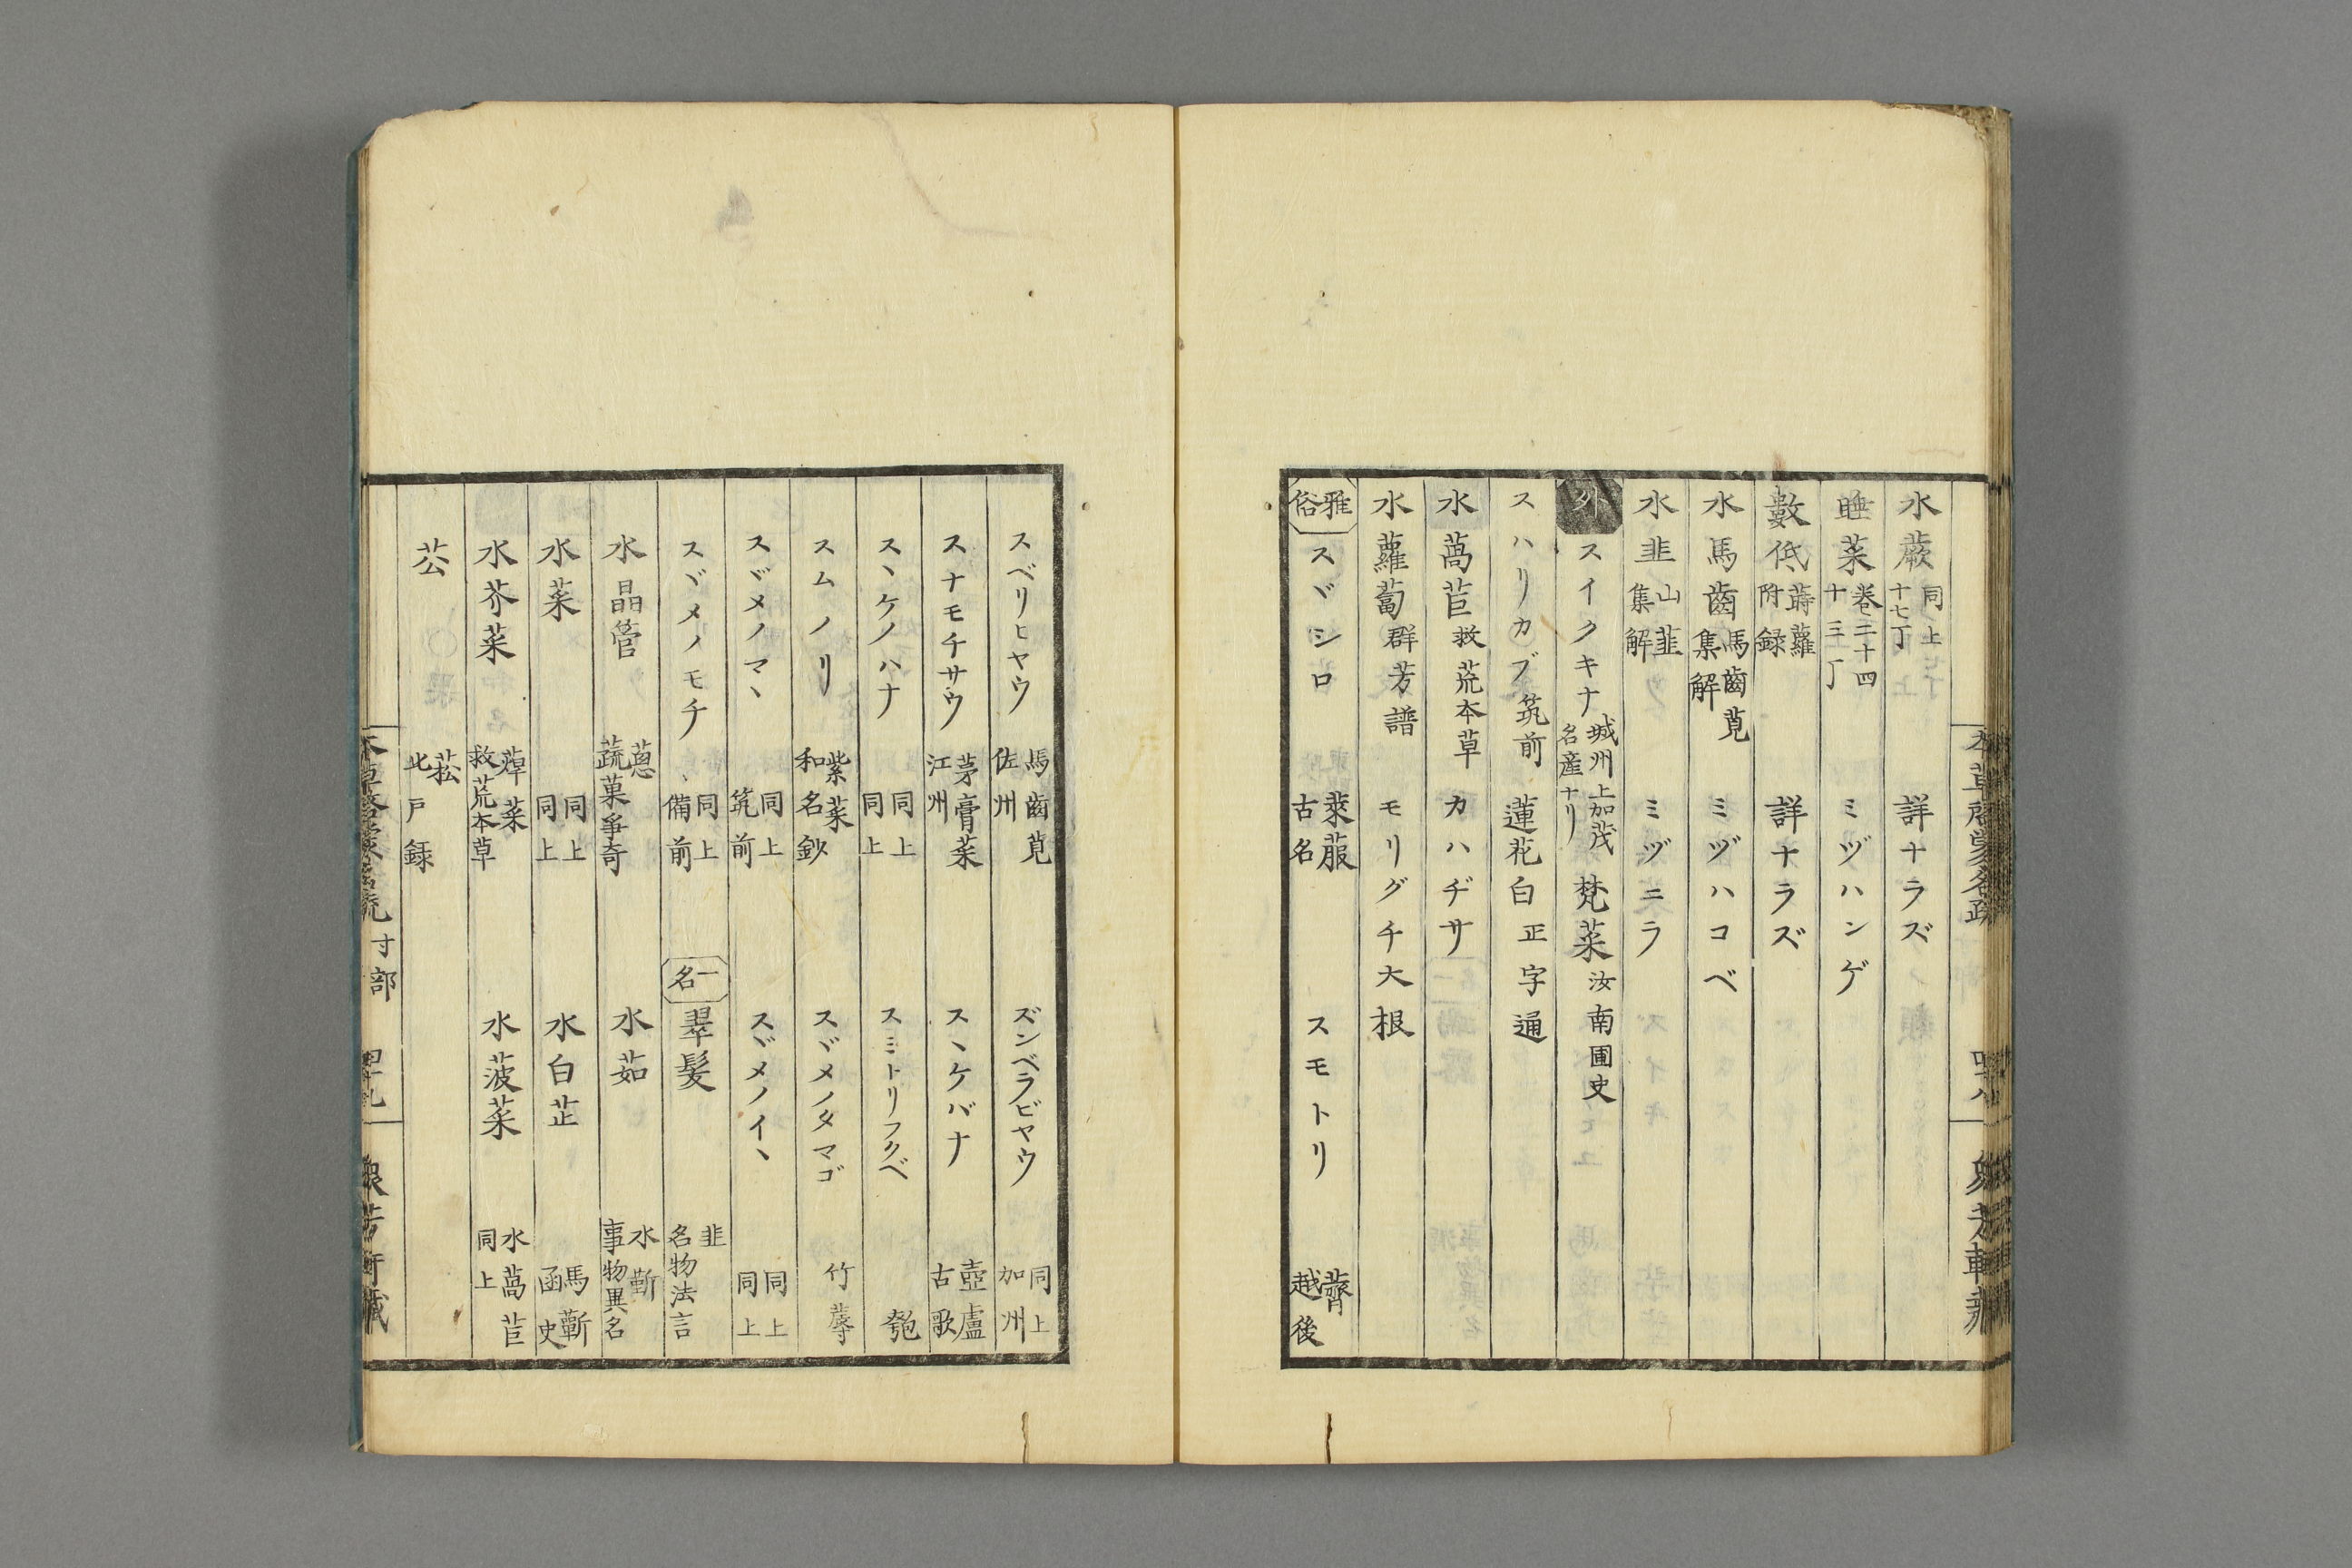 水蕨 同上 十七丁 詳ナラズ
睡菜 巻二十四 十三丁 ミヅハンゲ
數低 蒔蘿 附録 詳ナラズ
水馬齒 馬齒莧 集解 ミヅハコベ
水韭 山韮 集解 ミヅニラ
外 スイクキナ 城州上加茂 名産ナリ 梵菜 汝南圃史
スハリカブ 筑前 蓮花白 正字通
水萵苣 救荒本草 カハヂサ
水蘿蔔 群芳譜 モリグチ大根
雅俗 スヾシロ 萊菔 古名 スモトリ 薺 越後
スベリヒヤウ 馬齒莧 佐州 ズンベラビヤウ 同上 加州
スナモチサウ 茅膏菜 江州 スヽケバナ 壺盧 古歌
スヽケノハナ 同上 同上 スミトリフクベ 匏
スムノリ 紫菜 和名鈔 スヾメノタマゴ 竹蓐
スヾメノマヽ 同上 筑前 スヾメノイヽ 同上 同上
スヾメノモチ 同上 備前 一名 翠髪 韭 名物法言
水晶管 葱 蔬菓爭奇 水茹 水蘄 事物異名
水菜 同上 同上 水白芷 馬蘄 函史
水芥菜 蔊菜 救荒本草 水菠菜 水萵苣 同上
菘 菘 北戸録
本草啓蒙名疏 寸部 四十九 衆芳軒藏